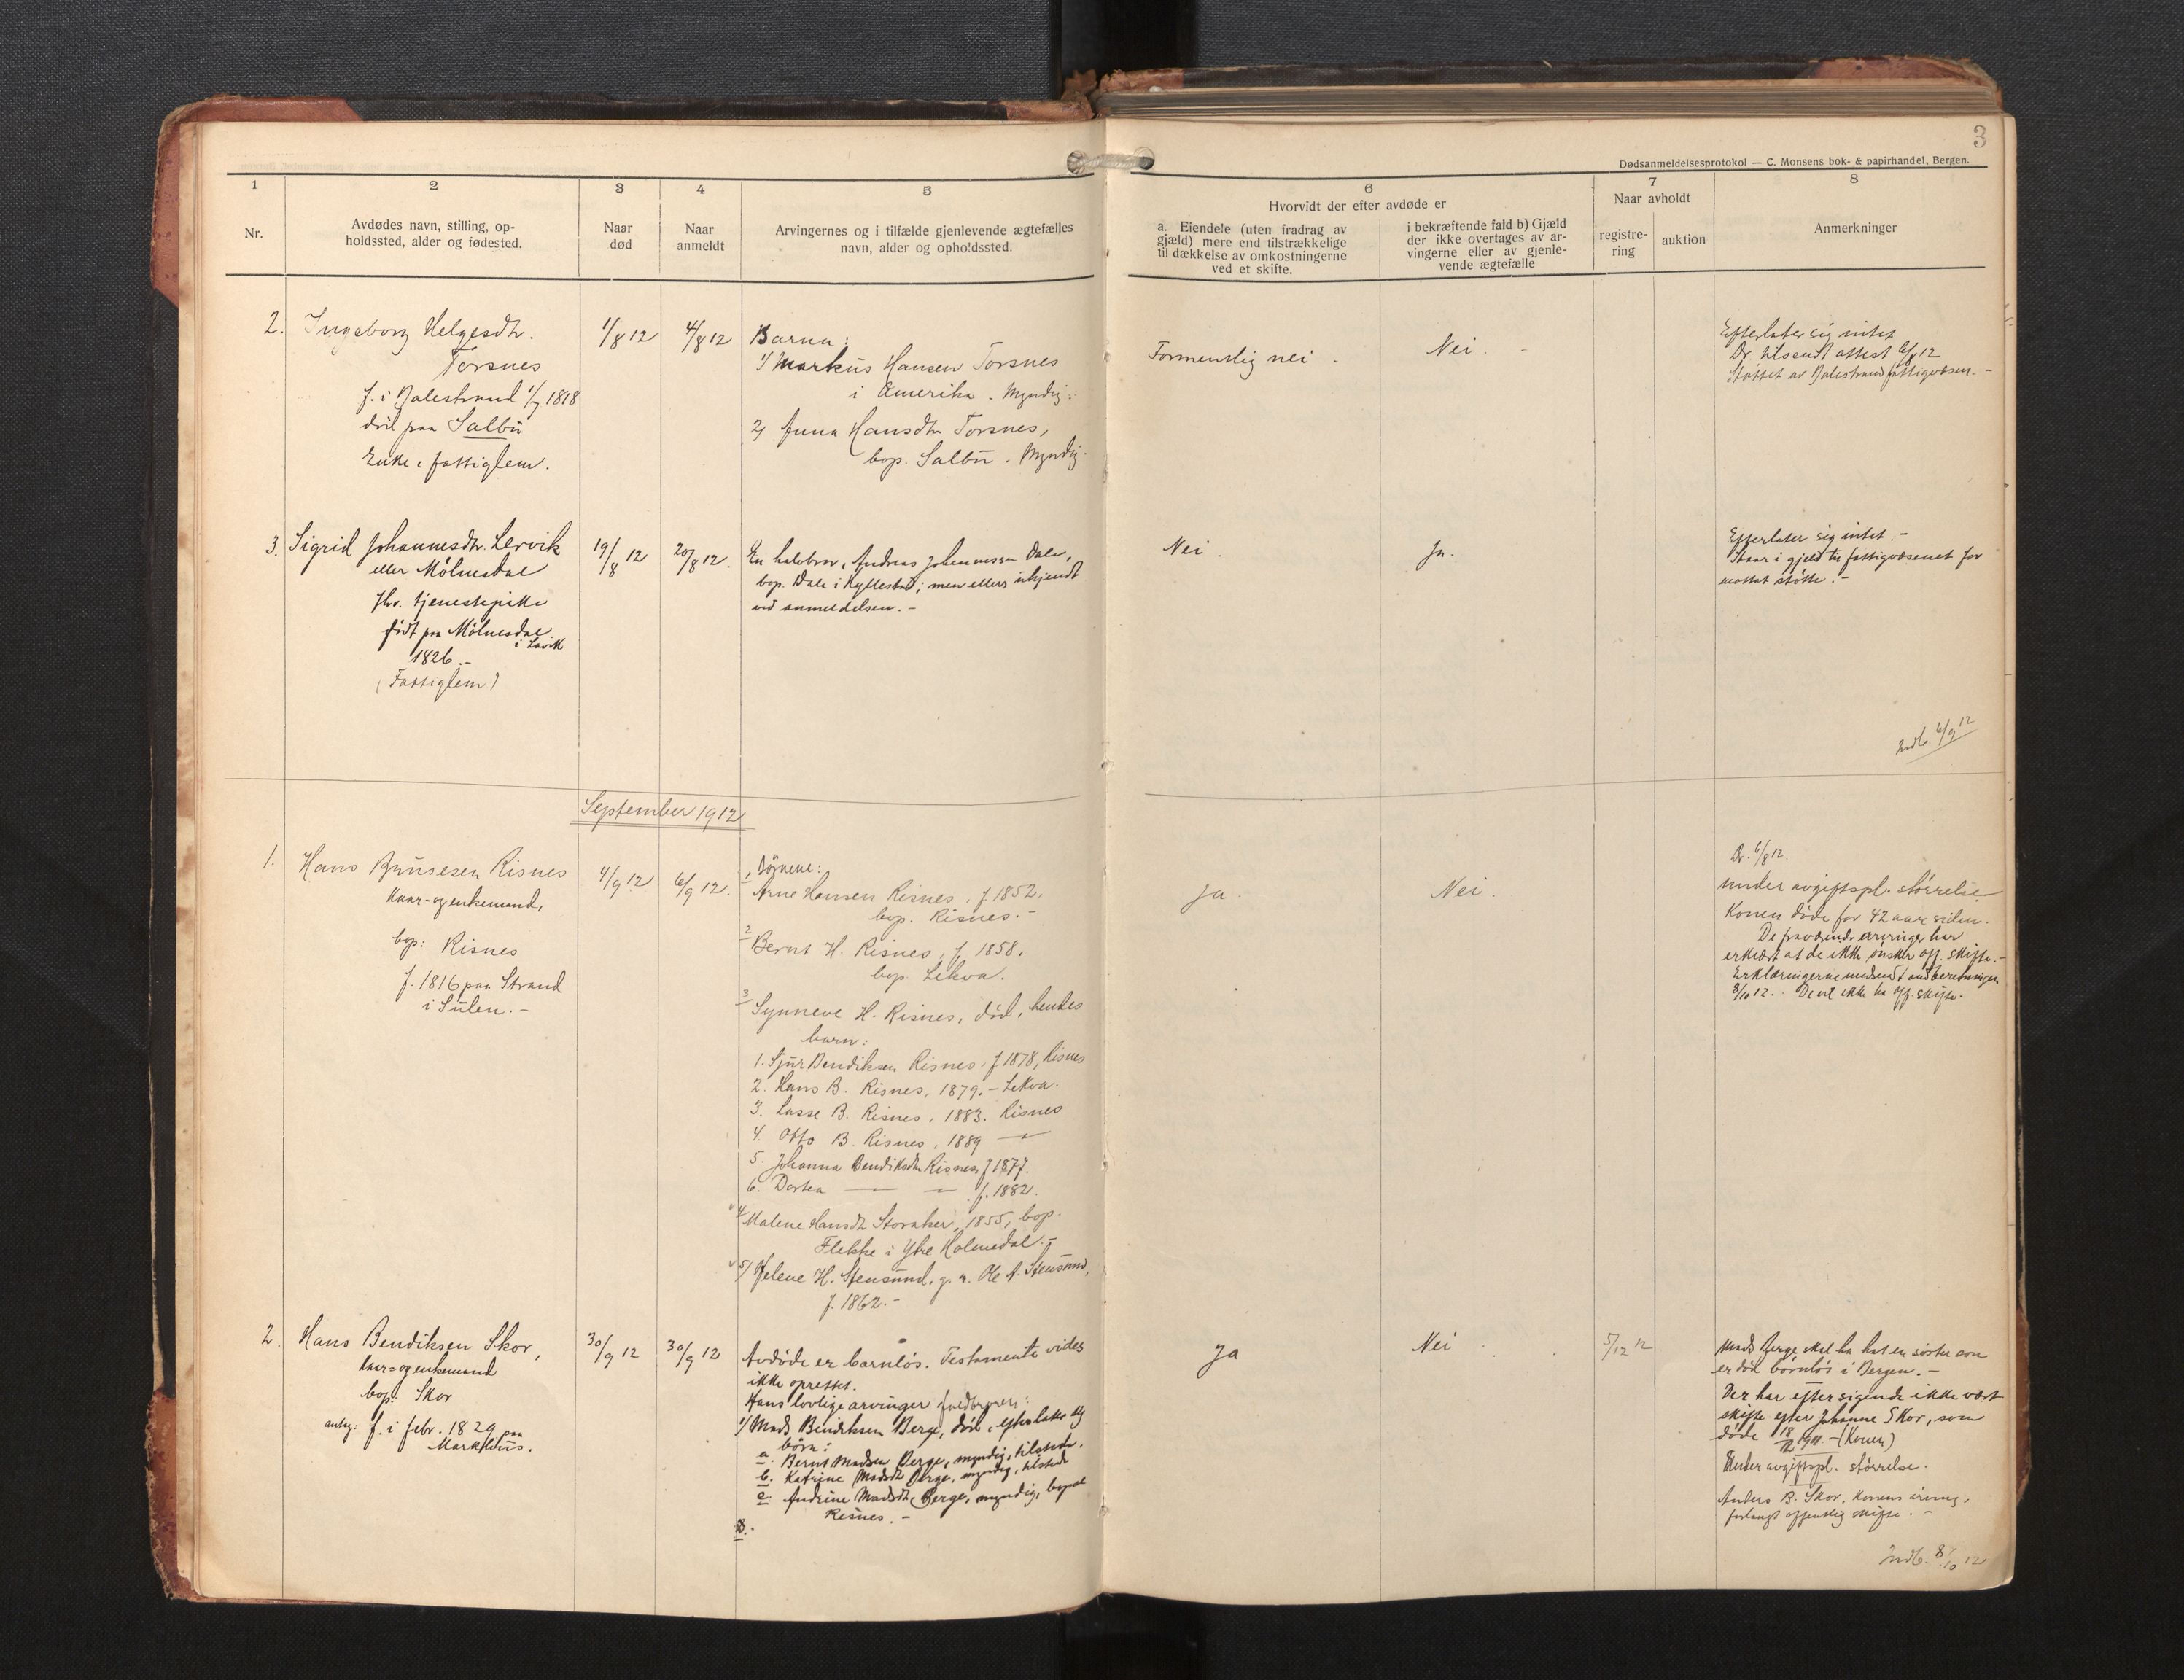 3
Dødsanmeldelsesprotokol — C. Monsens bok- & papirhandel, Bergen.
1
2
3
4
5
6
7
8
Nr.
Avdødes navn, stilling, op-
holdssted, alder og fødested.
Naar
død
Naar
anmeldt
Arvingernes og i tilfælde gjenlevende ægtefælles
navn, alder og opholdssted.
Hvorvidt der efter avdøde er
a. Eiendele (uten fradrag av
gjæld) mere end tilstrækkelige
til dækkelse av omkostningerne
ved et skifte.
i bekræftende fald b) Gjæld
der ikke overtages av ar-
vingerne eller av gjenle-
vende ægtefælle
Naar avholdt
registre-
ring
auktion
Anmerkninger
2.
Ingeborg Helgesdtr.
Torsnes
f. i Balestrand 1/7 1818
død paa Salbu
Enke, fattiglem.
1/8 12
4/8 12
Barn:
1/ Markus Hansen Torsnes
i Amerika. Myndig.
2/ Anna Hansdtr Torsnes,
bop. Salbu. Myndig.
Formentlig nei.
Nei.
Efterlater sig intet
Dr. tilsendt attest 6/8 12
Støttet av Balestrand fattigvæsen. -
3.
Sigrid Johannesdtr. Lervik
eller Mölnesdal
fhv. tjenestepike
født paa Mölnesdal
i Lavik
1826.-
(Fattiglem)
19/8 12
20/8 12.
En halvbror, Andreas Johannessen Dale,
bop. Dale i Hyllestad; men ellers ukjendt
ved anmeldelsen.-
Nei.
Ja.
Efterlater sig intet.-
Staar i gjæld til fattigvæsenet for
mottat støtte.-
Indb. 6/9 12
September 1912
1.
Hans Brusesen Risnes
Kaar- og enkemand,
bop: Risnes
f. 1816 paa Strand
i Sulen.-
4/9 12
6/9 12.
Börnene:
1 Arne Hansen Risnes, f. 1852.
bop. Risnes.-
2 Bernt H. Risnes, f. 1858.
bop. Lekva.
3 Synneve H. Risnes, död, hendes
barn:
1. Sjur Bendiksen Risnes, f 1878, Risnes
2. Hans B. Risnes, 1879.- Lekva.
3. Lasse B. Risnes, 1883. Risnes
4. Otto B. Risnes, 1889 — " —
5. Johanna Bendiksdtr Risnes, f 1877.
6. Dortea — — f. 1882.
4 Malene Hansdtr Storaker, 1855, bop.
Flekke i Ytre Holmedal.-
5/ Jelene H. Stensund, g. m. Ole A. Stensund,
f. 1862.-
Ja.
Nei.
Dr. 6/8 12.
Under avgiftspl. størrelse
Konen døde for 42 aar siden.
De fraværende arvinger har
erklært at de ikke ønsker off. skifte.-
Erklæringerne indsendt med beretningen
8/10 12. De vil ikke ha off. skifte.
2
Hans Bendiksen Skor,
Kaar- og enkemand
bop: Skor
antag: f. i febr. 1829 paa
Markhus.
30/9 12
30/9 12
Avdøde er barnløs. Testamente vides
ikke oprettet.
Hans lovlige arvinger
1/ Mads Bendiksen Berge, død, efterlater sig
børn:
a. Bernt Madsen Berge, myndig, tilstede.
b. Katrine Madsdtr Berge, myndig, tilstede
c. Andrine Madsdtr Berge, myndig, bopæl
Risnes.-
Ja
Nei
5/12 12
Mads Berge skal ha hat en søster som
er död börnløs i Bergen.-
Der har efter sigende ikke vært
skifte efter Johanne Skor, som
døde 1911.- (Konen)
Under avgiftspl. størrelse.
Anders B. Skor, konens arving,
forlangt offentlig skifte.-
Indb. 8/10 12